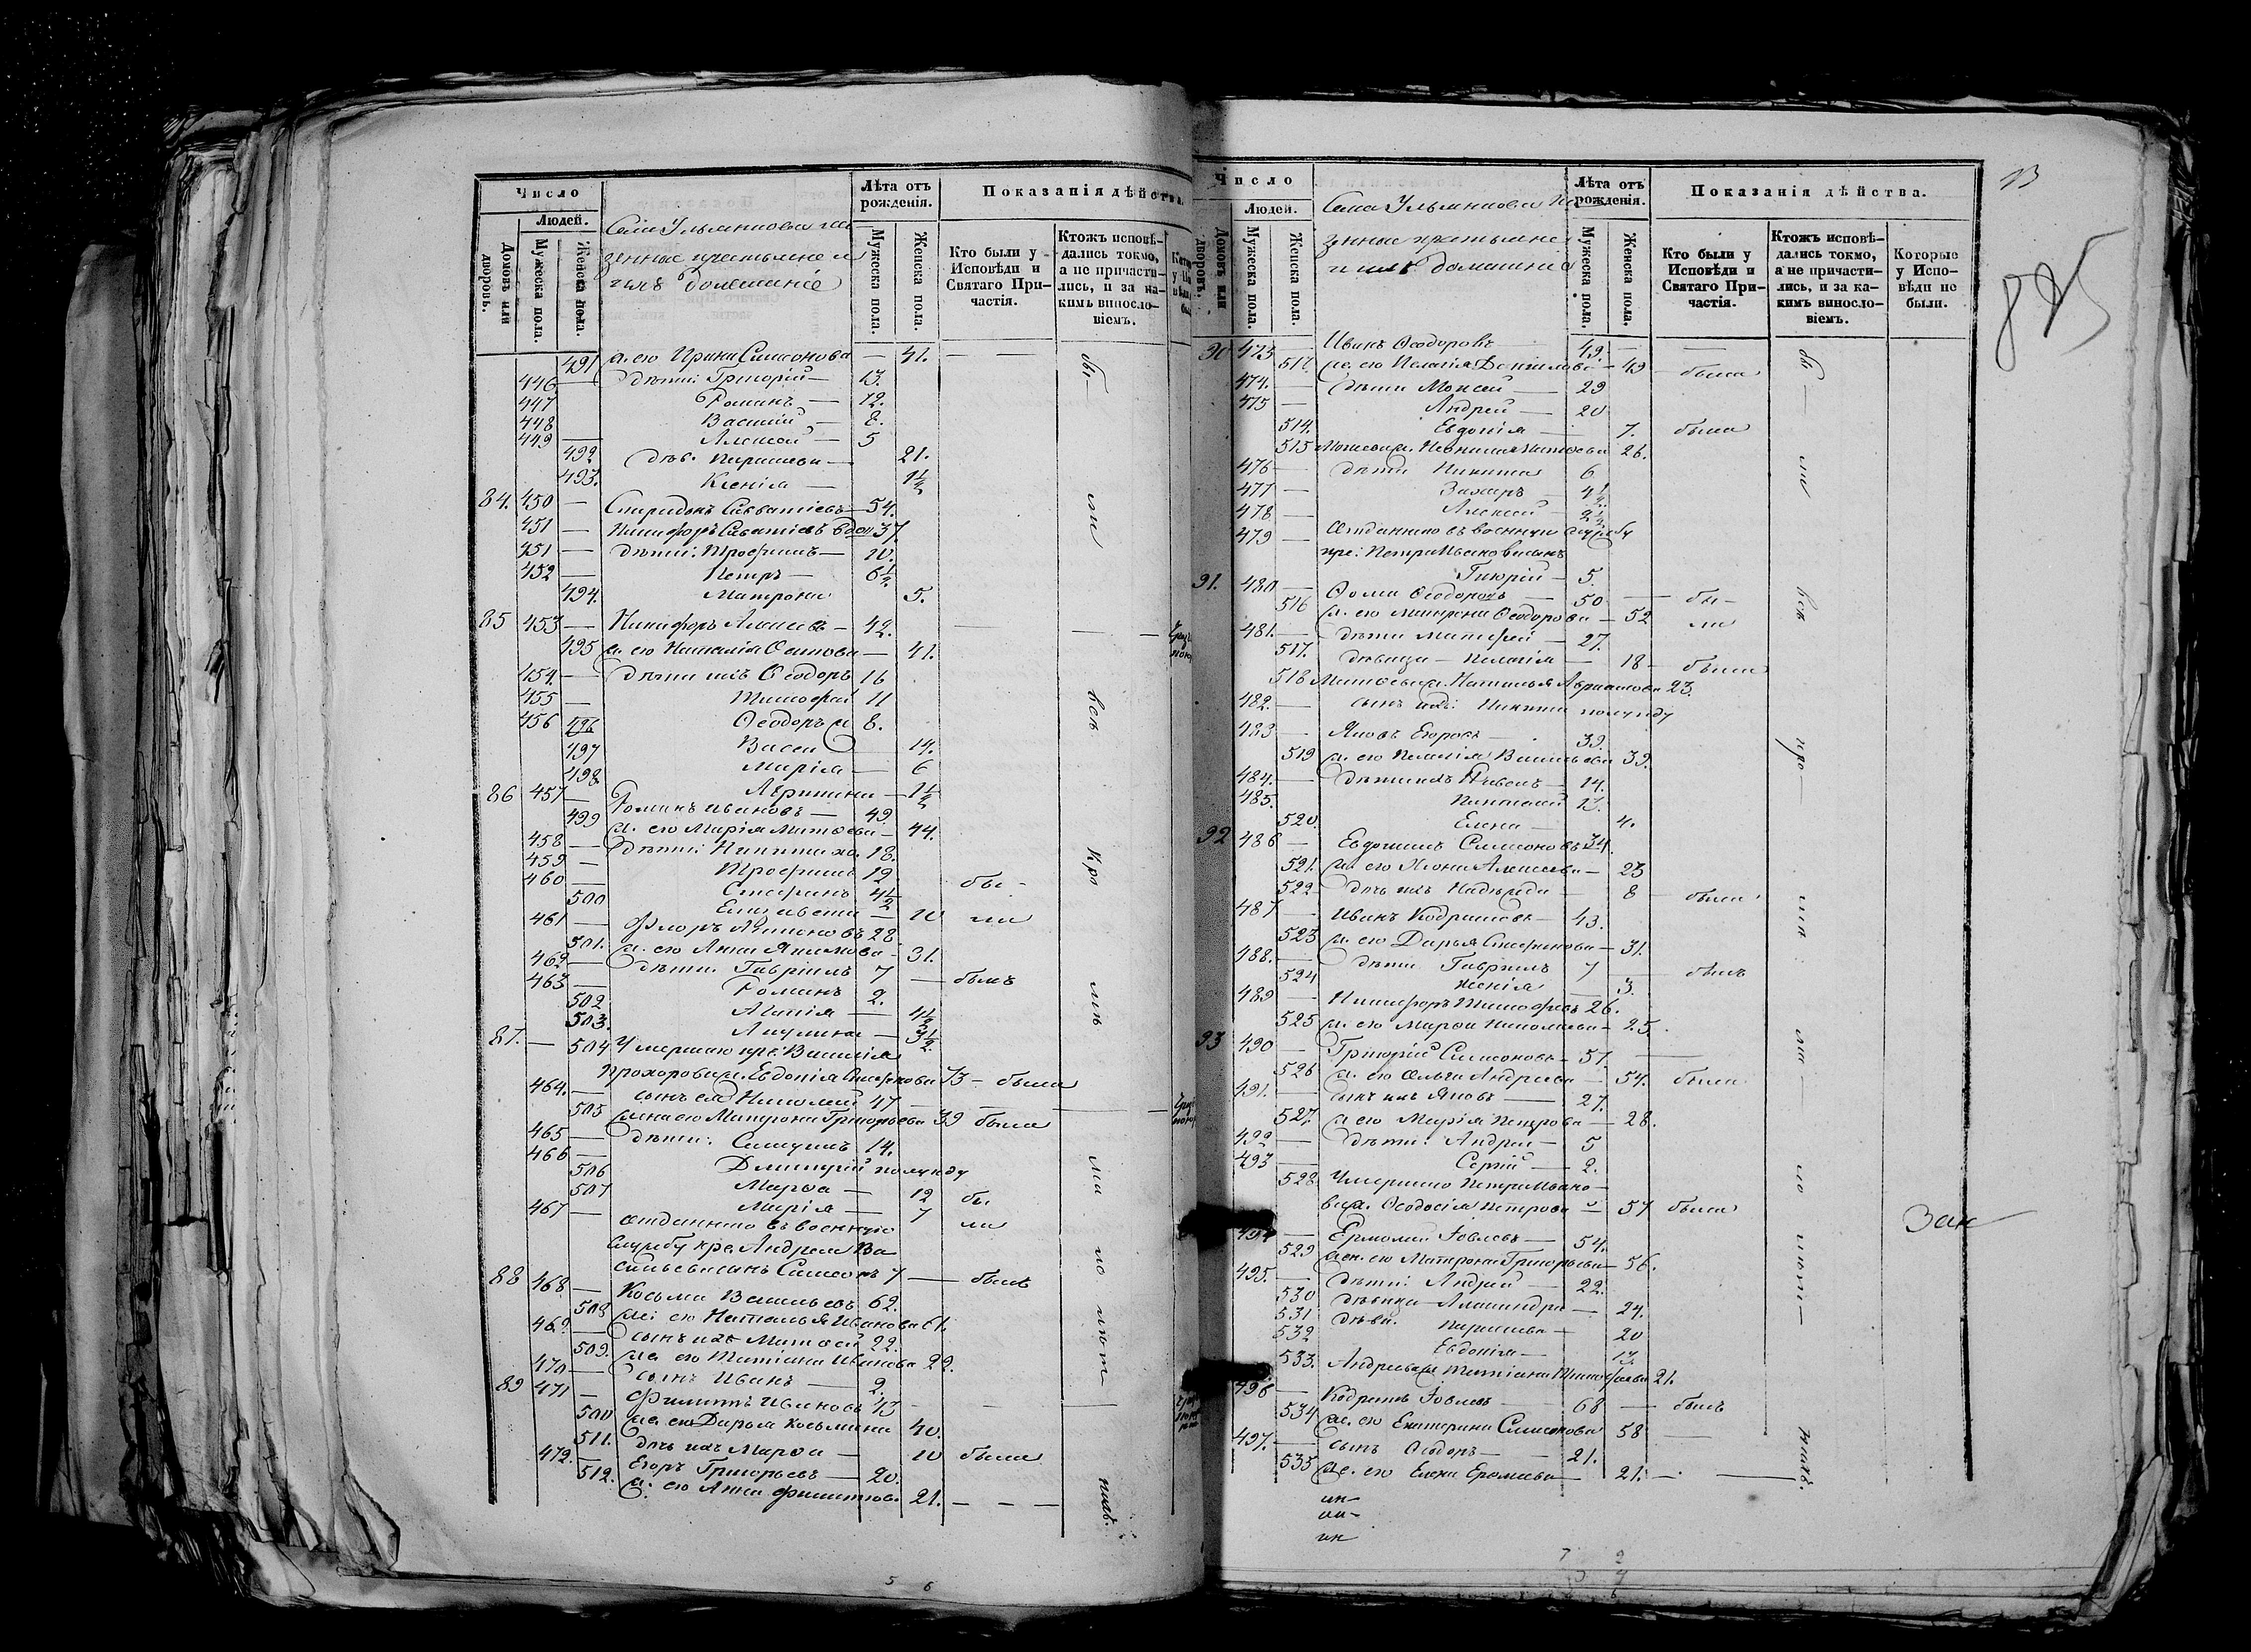 Число
Людей.
Домовъ или дворовъ.
Мужеска пола.
Женска пола.
Села Ульянкова ка-
зенные крестьяне и
ихъ домашніе
Лѣта отъ рожденія.
Мужеска пола.
Женска пола.
Показанія дѣйства.
Кто были у Исповѣди и Святаго Причастія.
Ктожъ исповѣдались токмо, а не причастились, и за какимъ винословіемъ.
491 ж. его Ирина Симонова — 41.
446 — дѣти: Григорій — 13.
447 Романъ — 12.
448 Василій — 8.
449 — Алексѣй — 5
492 дѣв. Параскева — 21.
493. Ксенія — 1½
84. 450 — Спиридонъ Савватіевъ — 54.
451 — Никифоръ Саватіевъ вдов 37
451 — дѣти: Трофимъ — 10.
452 — Петръ — 6½
494. Матрона 5.
85 453 — Никифоръ — 42.
495 ж. его Наталія — 41.
454. — Дѣти ихъ Ѳеодоръ 16
455 — Тимофей 11
456 496 Ѳеодоръ 8.
497 14.
498 Марія — 6
— 1½
86 457 — Романъ Ивановъ — 49.
499 ж. его Марія Матѳеева — 44.
458 — Дѣти: Никита 18.
459 — Трофимъ 12
460 — Стефанъ 4½
500 Елизавета — 10
бы-
ли
461 — Флоръ 28
501. ж. его Анна — 31.
462 — дѣти: Гавріилъ 7 — былъ
463 — Романъ 2.
502 4½
503. Акулина — 3½
87. — 504 Умершаго кре: Василія
Прохорова ж. Евдокія 73 — была
464. — сынъ ея Николай 47
505 жена его Матрона Григорьева 39 была
465 — дѣти: 14.
466 — Димитрій полугоду
506 Марѳа — 12
507 Марія — 7
бы
ли
467 — отданнаго въ военную
службу кре. Андрея Ва
сильева сынъ Симеонъ 7 — былъ
88 468 — Косьма Васильевъ 62.
508 ж: его Наталья Иванова 61.
469 — сынъ ихъ Матѳей 22.
509. ж. его Татіана Иванова 22.
470 — сынъ Иванъ — 2.
89 471 — Филиппъ Ивановъ 43
510 ж. его Дарья Косьмина 40.
511. дочь ихъ Марѳа — 10 была
472. — Егоръ Григорьевъ — 20.
512. ж. его Анна Филиппова 21. — — —
бы — ли всѣ кро мѣ ма ло лѣт нихъ.
Число
Людей.
Домовъ или дворовъ.
Мужеска пола.
Женска пола.
Села Ульянкова ка-
зенные крестьяне
и ихъ домашніе
Лѣта отъ рожденія.
Мужеска пола.
Женска пола.
Показанія дѣйства.
Кто были у Исповѣди и Святаго Причастія.
Ктожъ исповѣдались токмо, а не причастились, и за какимъ винословіемъ.
Которые у Исповѣди не были.
13
90 473 — Иванъ Ѳеодоровъ — 49. —
517. ж. его Пелагія Данилова — 49 — была
474. — дѣти Моисей — 29
475 — Андрей — 20
514. Евдокія — 7. была
515 Моисеева ж. Матѳеева 26.
476 — дѣти Никита 6
477 — Захаръ — 4½
478 — Алексѣй — 2½
479 — отданнаго въ военную службу
кре: Петра Иванова сынъ
5.
91. 480 — Ѳома Ѳеодоровъ — 50 — бы-
516 ж. его Матрона Ѳеодорова — 52 ли
481. — дѣти Матѳей — 27.
517. дѣвица — Пелагія — 18 — была
518 Матѳеева ж. Наталья 23.
482. — сынъ Никита полугоду
483 — Яковъ Егоровъ — 39.
519 ж. его Пелагія Васильева 39.
484. — дѣти ихъ Павелъ — 14.
485. 13.
520. Елена — 4.
92 486 — Евдокимъ Симеоновъ 34.
521. ж. его Алексѣева — 23
522 — дочь ихъ Надежда — 8 — была
487 — Иванъ Кодратовъ — 43.
523 ж. его Дарья Стефанова — 31.
488. — дѣти Гавріилъ 7 — былъ
524 Ксенія — 3.
489 — Никифоръ Тимофѣевъ 26.
525 ж. его Марѳа Николаева — 25.
93 490 — Григорій Симеоновъ — 57. —
526 ж. его Ольга Андреева — 54. была
491. — сынъ ихъ Яковъ — 27.
527. ж его Марія Петрова — 28.
492 — дѣти: Андрей — 5
493 — Сергій — 2.
528 Умершаго Петра Ивано-
ва ж. Ѳеодосія Петрова — 57 была
494 — Ермолай Іовлевъ — 54.
529 жен. его Матрона Григорьева — 56.
495. — дѣти: Андрей — 22.
530 дѣвица Александра — 24.
531 дѣви. Параскева — 20
532 Евдокія — 13.
533. Андреева ж Татіана Тимофѣева 21.
496 — Кодратъ Іовлевъ — 68 — былъ
534 ж. его Екатерина Симеонова 58 —
497. — сынъ Ѳеодоръ — 21.
535 же. его Елена — 21. —
бы — ли всѣ кро — мѣ ма — ло лѣт — нихъ.
Зак